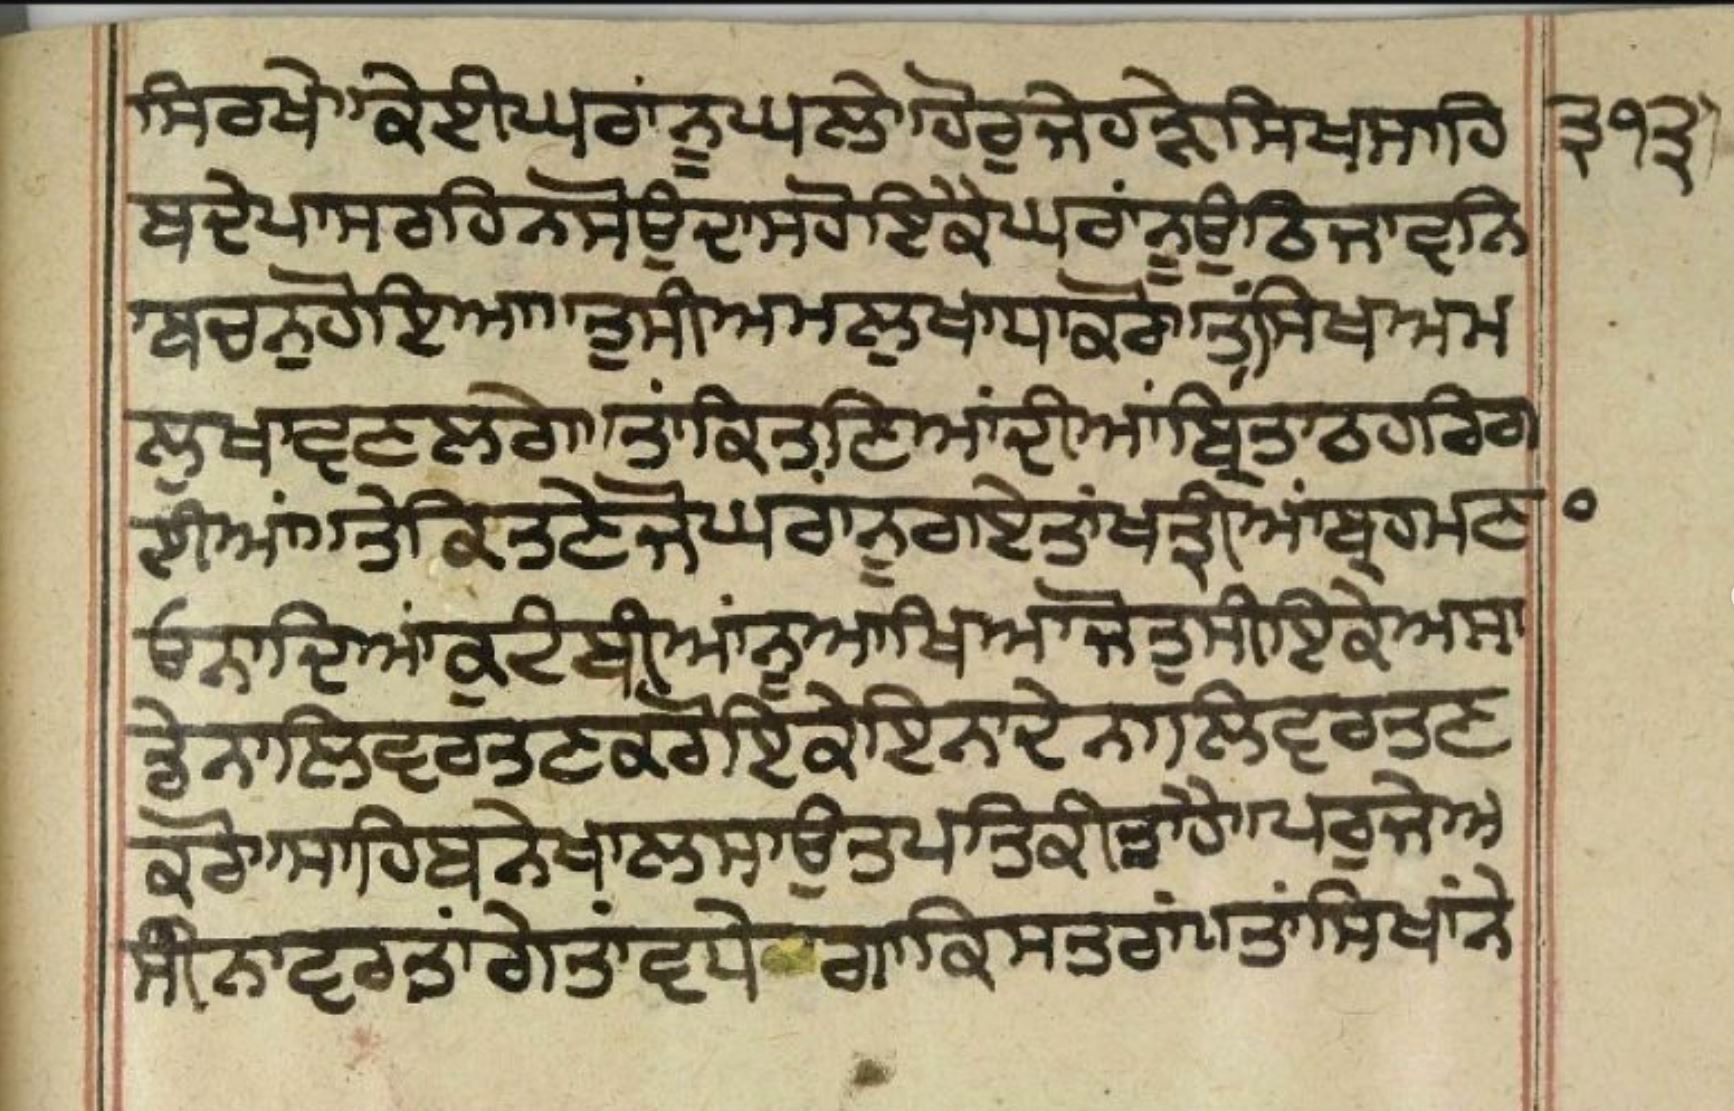 ਸਿਰਖੇ ਕੇਈ ਘਰਾਂ ਨੂ ਘਲੇ ਹੋਰੁ ਜੇਹੜੇ ਸਿਖ ਸਾਹਿ ੩੧੩
ਬ ਦੇ ਪਾਸ ਰਹਿਨ ਸੋ ਉਦਾਸ ਹੋਇ ਕੈ ਘਰਾਂ ਨੂ ਉਠਿ ਜਾਵਨਿ
ਬਚਨੁ ਹੋਇਆ ਤੁਸੀ ਅਮਲੁ ਖਾਯਾ ਕਰੋ ਤਾਂ ਸਿਖ ਅਮ
ਲੁ ਖਾਵਣ ਲਗੇ ਤਾਂ ਕਿਤਣਿਆਂ ਦੀਆਂ ਬ੍ਰਿਤਾ ਠਹਰਿ ਗ
ਈਆਂ ਤੇ ਕਿਤਣੇ ਜੋ ਘਰਾਂ ਨੂ ਗਏ ਤਾਂ ਖਤ੍ਰੀਆਂ ਬ੍ਰਹਮਣ
ਓਨਾ ਦਿਆਂ ਕੁਟੰਬੀਆਂ ਨੂ ਆਖਿਆ ਜੋ ਤੁਸੀ ਇਕੇ ਅਸਾ
ਡੇ ਨਾਲਿ ਵਰਤਣ ਕਰੋ ਇਕੇ ਇਨਾ ਦੇ ਨਾਲਿ ਵਰਤਣ
ਕਰੋ ਸਾਹਿਬ ਨੇ ਖਾਲਸਾ ਉਤਪਤਿ ਕੀਤਾ ਹੈ ਪਰੁ ਜੇ ਅ
ਸੀ ਨਾ ਵਰਤਾਂਗੇ ਤਾਂ ਵਧੇਗਾ ਕਿਸ ਤਰਾਂ ਤਾਂ ਸਿਖਾਂ ਨੇ